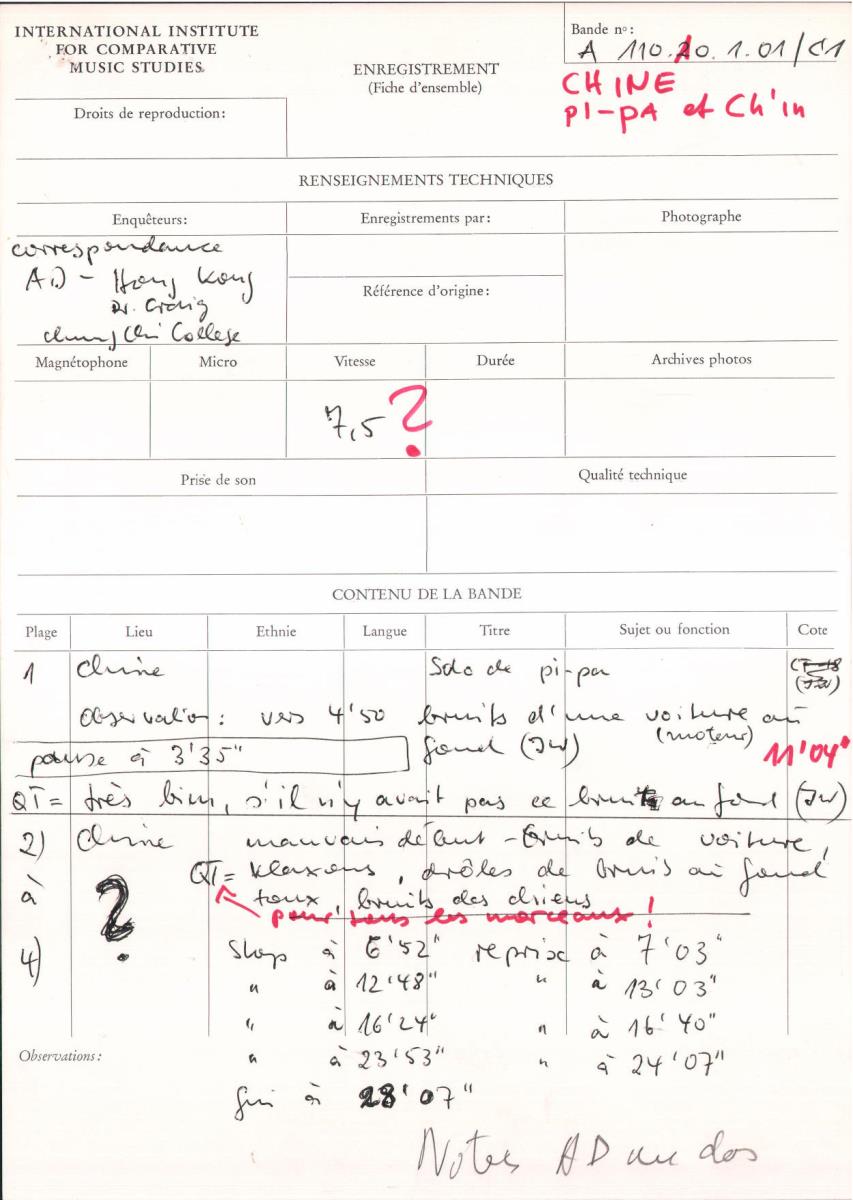 INTERNATIONAL INSTITUTE
FOR COMPARATIVE
MUSIC STUDIES
Bande no:
A 110.20.1.01/C1
ENREGISTREMENT
(Fiche d'ensemble)
CHINE
pi-pA et Ch'in
Droits de reproduction:
RENSEIGNEMENTS TECHNIQUES
Enquêteurs:
Enregistrements par:
Photographe
correspondance
AD - Hong Kong
Dr. Craig
Chung Chi College
Référence d'origine:
Magnétophone
Micro
Vitesse
Durée
Archives photos
7,5 ?
Prise de son
Qualité technique
CONTENU DE LA BANDE
Plage
Lieu
Ethnie
Langue
Titre
Sujet ou fonction
Cote
1 Chine Solo de pi-pa
Observation: vers 4'50 bruits d'une voiture au
fond (JW) (moteur)
pause à 3'35"
11'04"
QT = très bien, s'il n'y avait pas ce bruit au fond (JW)
2) Chine mauvais début - bruits de voiture,
QT = klaxons, drôles de bruis au fond
à ? toux, bruits des chiens
pour tous les morceaux!
4) Stop à 6'52" reprise à 7'03"
" à 12'48" " à 13'03"
" à 16'24" " à 16'40"
Observations:
" à 23'53" " à 24'07"
fin à 28'07"
Notes AD au dos